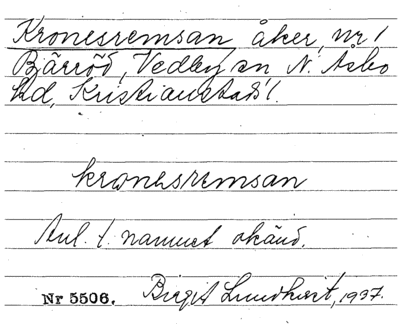 Kronesremsan åker, nr 1
Bjärröd, Vedby sn, N. Åsbo
hd, Kristianstads l.
kronesremsan
Anl. t. namnet okänd.
Nr 5506. Birgit Lundkvist, 1937.